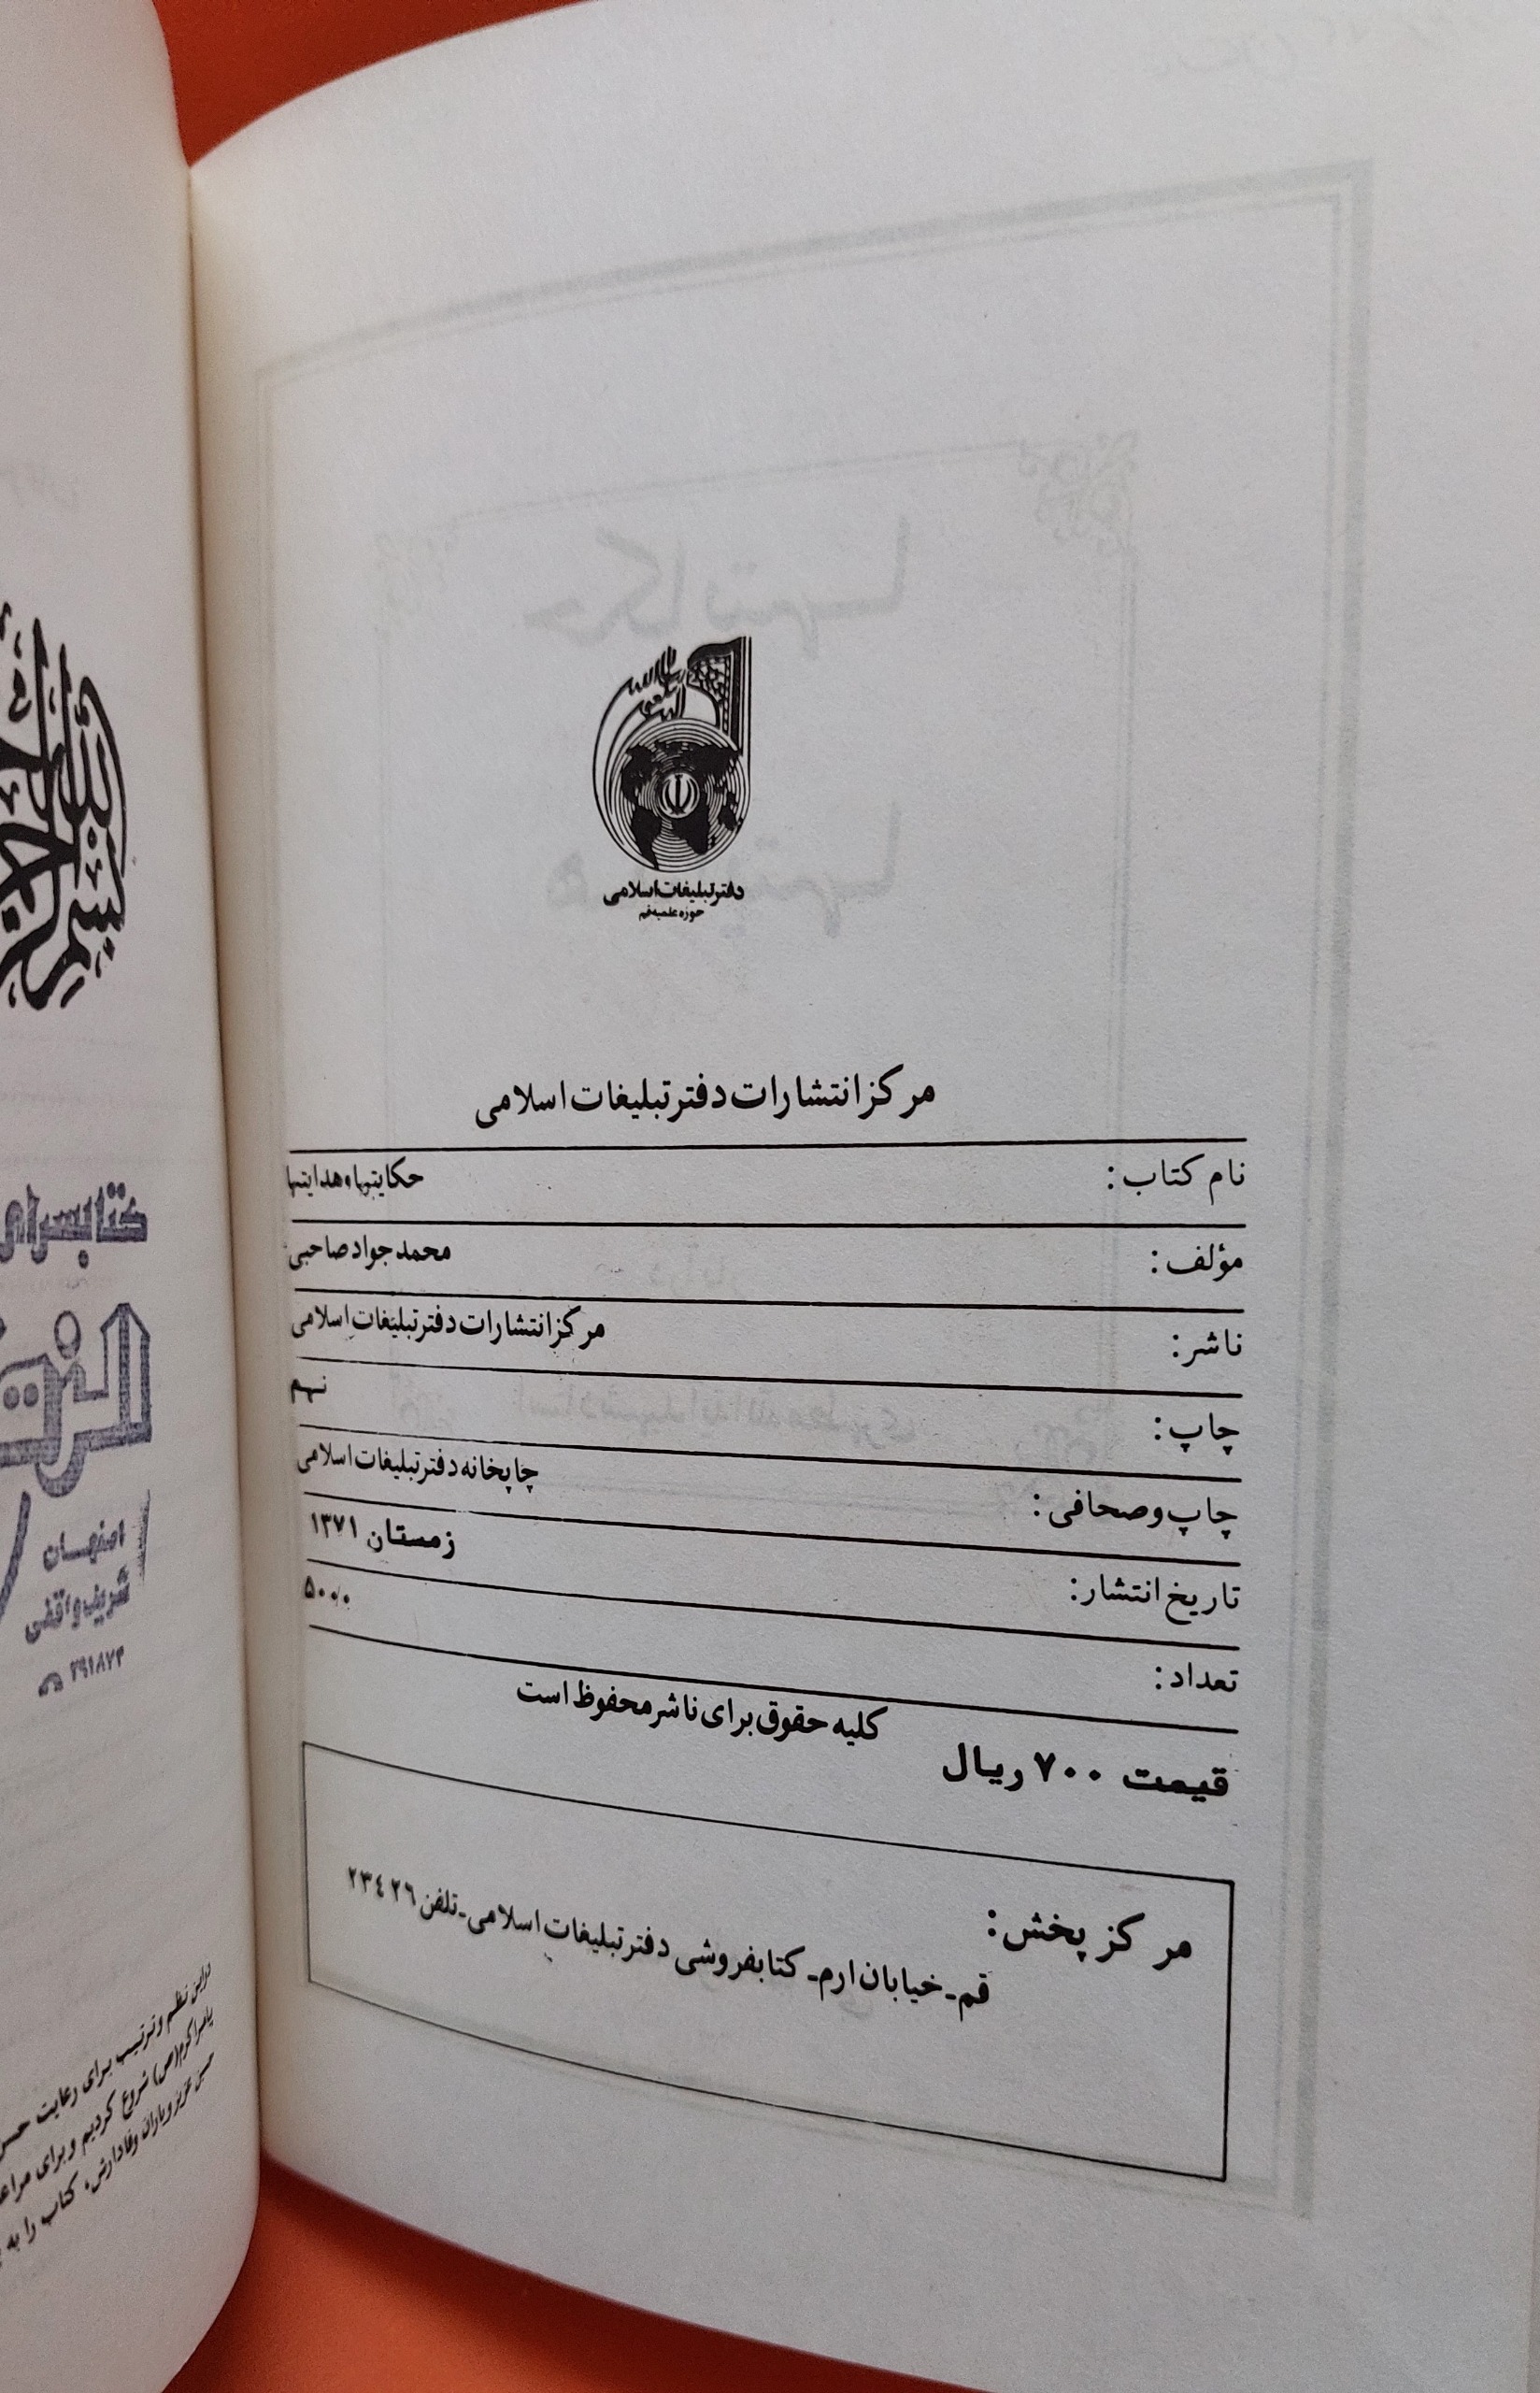 دفتر تبلیغات اسلامی
حوزه علمیه قم
مرکز انتشارات دفتر تبلیغات اسلامی
نام کتاب: حکایتها و هدایتها
مؤلف: محمد جواد صاحبی
ناشر: مرکز انتشارات دفتر تبلیغات اسلامی
چاپ: نهم
چاپ و صحافی: چاپخانه دفتر تبلیغات اسلامی
تاریخ انتشار: زمستان ۱۳۷۱
تعداد: ۵۰۰۰
کلیه حقوق برای ناشر محفوظ است
قیمت ۷۰۰ ریال
مرکز پخش:
قم - خیابان ارم - کتابفروشی دفتر تبلیغات اسلامی - تلفن ۲۳٤۲٦
کتابسرای
اصفهان
شریف واقفی
۲۹۱۸۷۴
در این نظم و ترتیب برای رعایت حسن
شروع کردیم و برای
عزیز و یاران وفادارش، کتاب را به